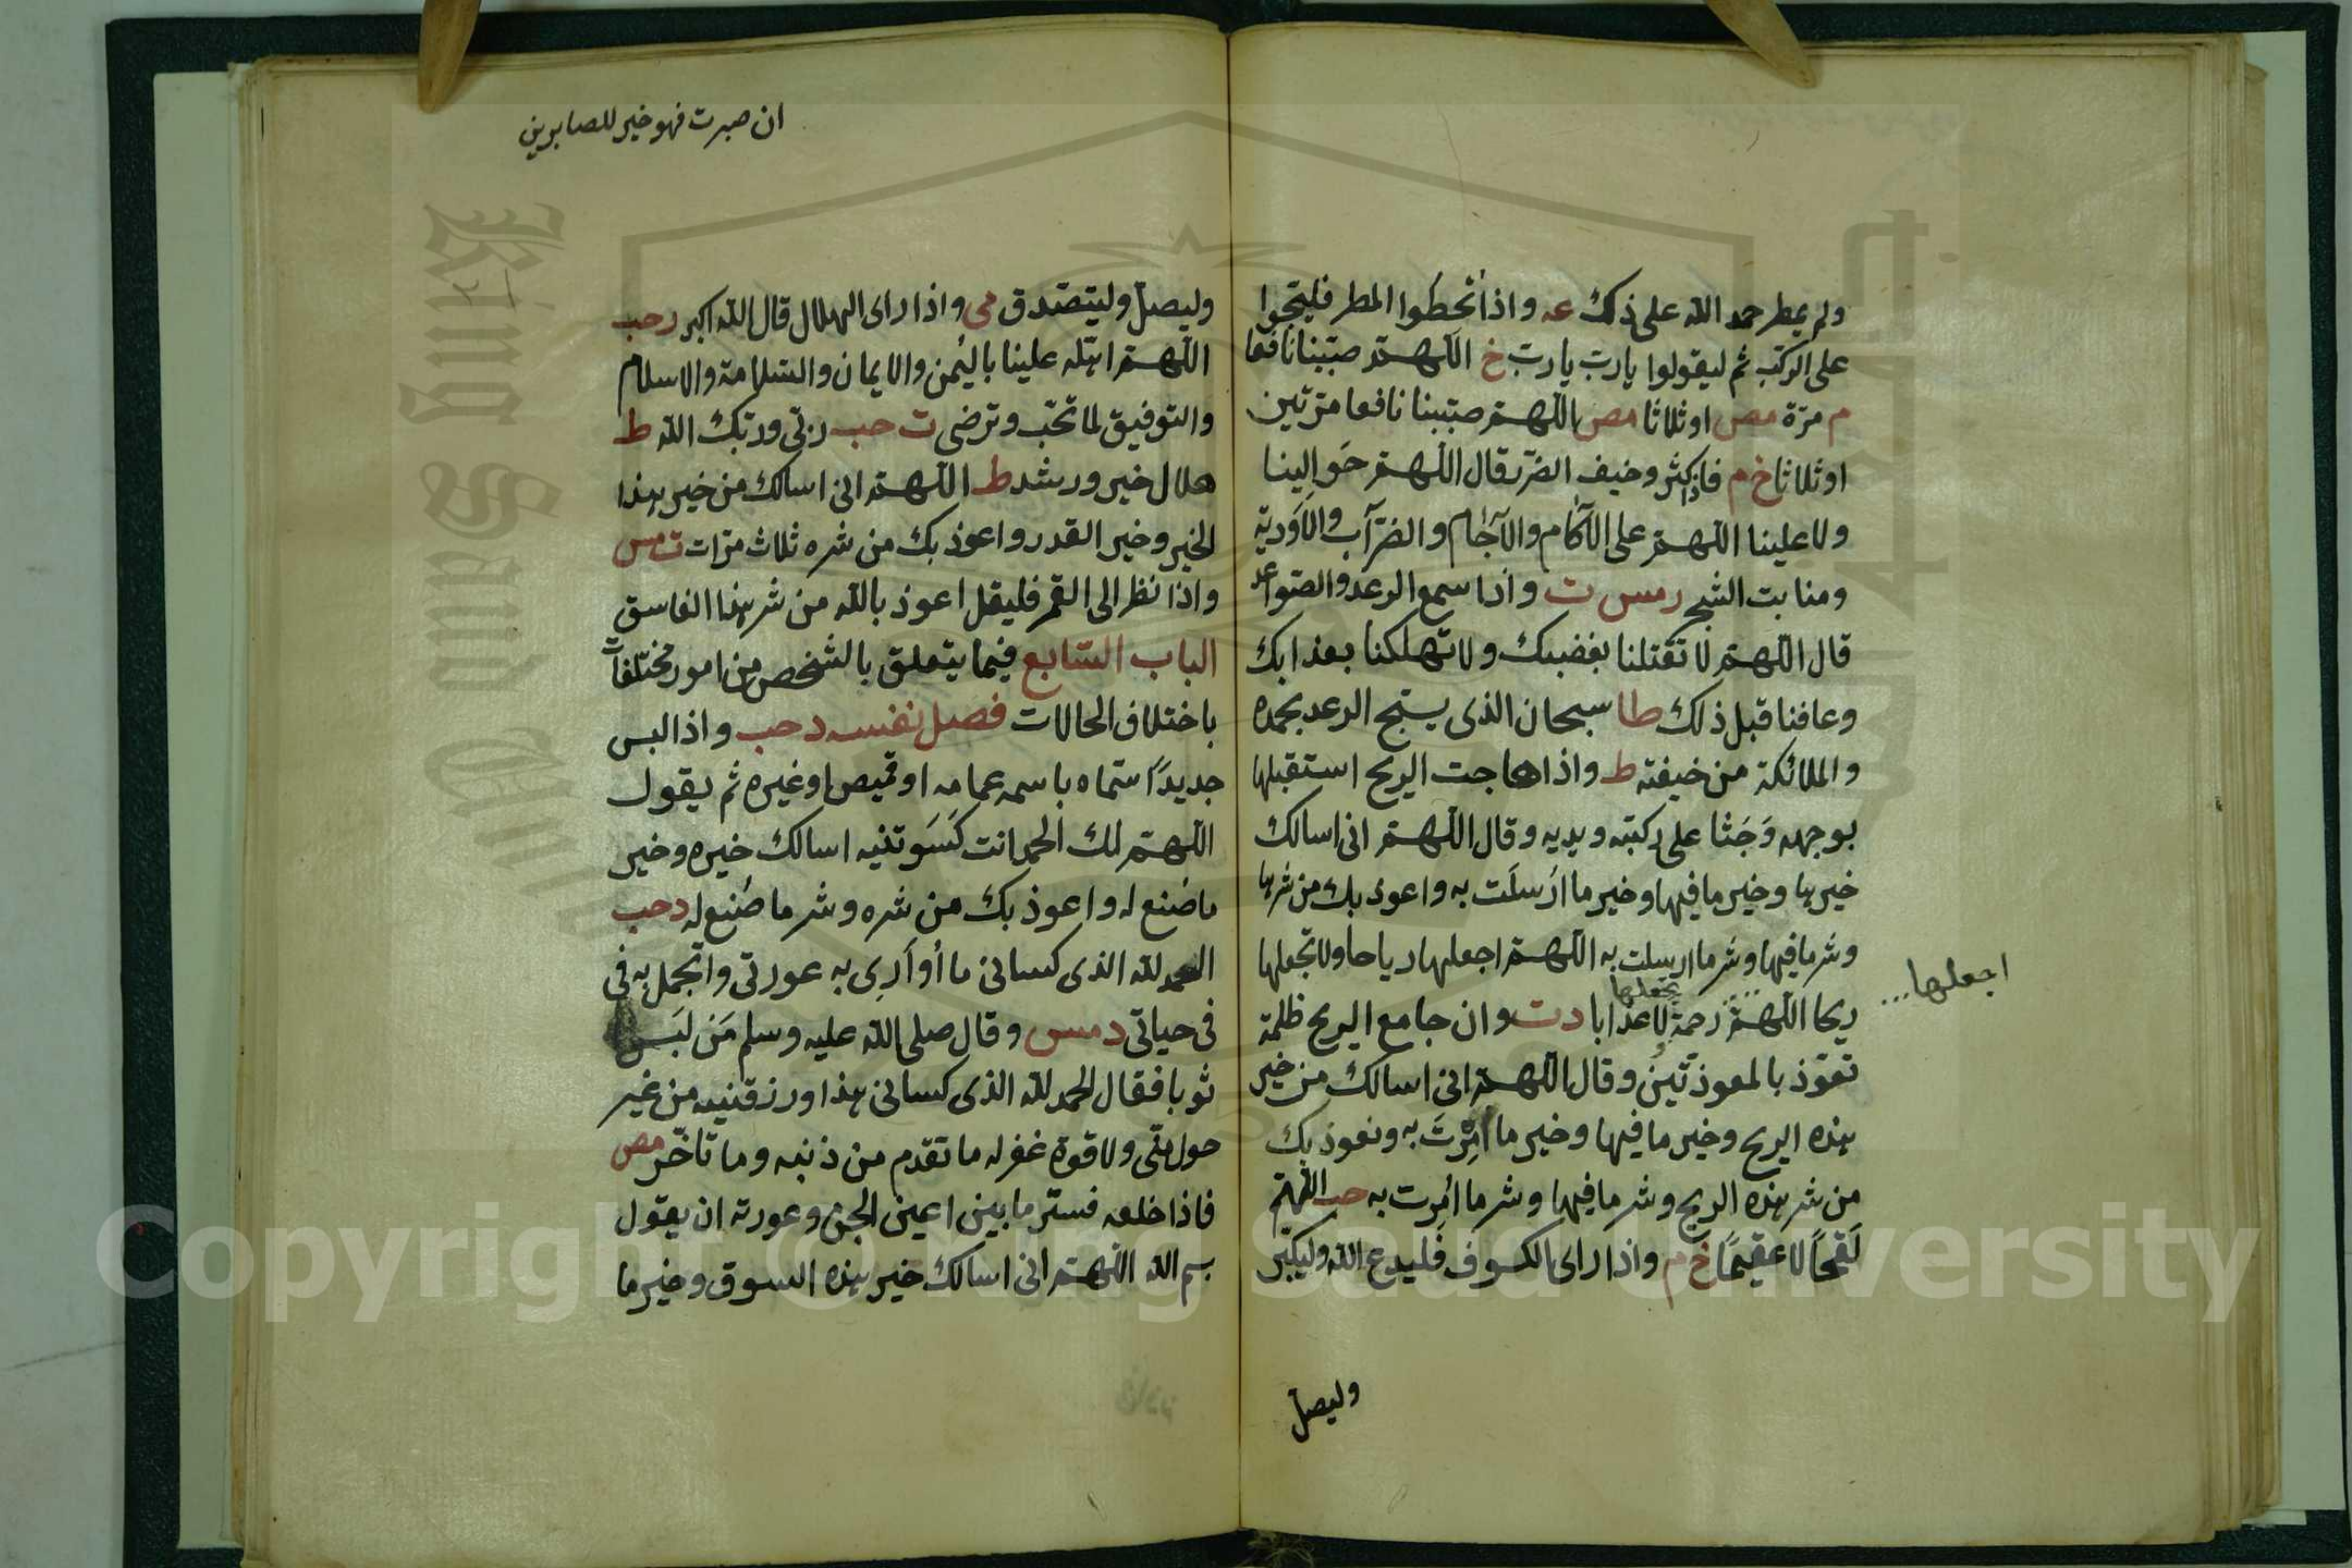 ولم يمطر حمد الله على ذلك عه واذا قحطوا المطر فليجثوا
على الركب ثم ليقولوا يارب يارب خ اللهم صيبنا نافعا
م مرة مص او ثلاثا مص اللهم صيبنا نافعا مرتين
او ثلاثا خ م فاذا كثر وخيف الضر قال اللهم حوالينا
ولا علينا اللهم على الآكام والآجام والضرآب والاودية
ومنابت الشجر مس ت واذا سمع الرعد والصواعد
قال اللهم لا تقتلنا بغضبك ولا تهلكنا بعذابك
وعافنا قبل ذلك طا سبحان الذى يسبح الرعد بحمده
والملائكة من خيفته ط واذا هاجت الريح استقبلها
بوجهه وَجَثا على ركبته ويديه وقال اللهم انى اسالك
خيرها وخير ما فيها وخير ما ارسلت به واعوذ بك من شرها
وشر ما فيها وشر ما ارسلت به اللهم اجعلها رياحا ولا تجعلها
ريحا اللهم رحمة لا تجعلها عذابا د ت وان جامع الريح ظلمة
تعوذ بالمعوذتين وقال اللهم انى اسالك من خير
هذه الريح وخير ما فيها وخير ما اُمِرْتَ به ونعوذ بك
من شر هذه الريح وشر ما فيها وشر ما اُمِرت به حب اللهم
لَقحاً لا عقيماً خ م واذا راى الكسوف فليدع الله وليكبر
وليصل
اجعلها...
ان صبرت فهو خير للصابرين
وليصل وليتصدق مى واذا راى الهلال قال الله اكبر ر حب
اللهم اهله علينا باليُمن والايمان والسلامة والاسلام
والتوفيق لما تحب وترضى ت حب ربى وربك الله ط
هلال خير ورشد ط اللهم انى اسالك من خير هذا
الخير وخير القدر واعوذ بك من شره ثلاث مرات ت مس
واذا نظر الى القمر فليقل اعوذ بالله من شر هذا الغاسق
الباب السابع فيما يتعلق بالشخص من امور مختلفات
باختلاف الحالات فصل نفسه د حب واذا لبس
جديدًا ستماه باسمه عمامه او قميص او غيره ثم يقول
اللهم لك الحمد انت كَسَوتنيه اسالك خيره وخير
ما صُنع له واعوذ بك من شره وشر ما صُنع له د حب
الحمد لله الذى كسانى ما أُوَارِى به عورتى واتجمل به فى
فى حياتى د مس وقال صلى الله عليه وسلم مَن لبَس
ثوبا فقال الحمد لله الذى كسانى هذا ورزقنيه من غير
حول منى ولا قوة غفر له ما تقدم من ذنبه وما تأخر مص
فاذا خلعه فستر ما بين اعين الجن وعورته ان يقول
بسم الله اللهم انى اسالك خير هذه السوق وخير ما
Copyright © King Saud University
King Saud Uni